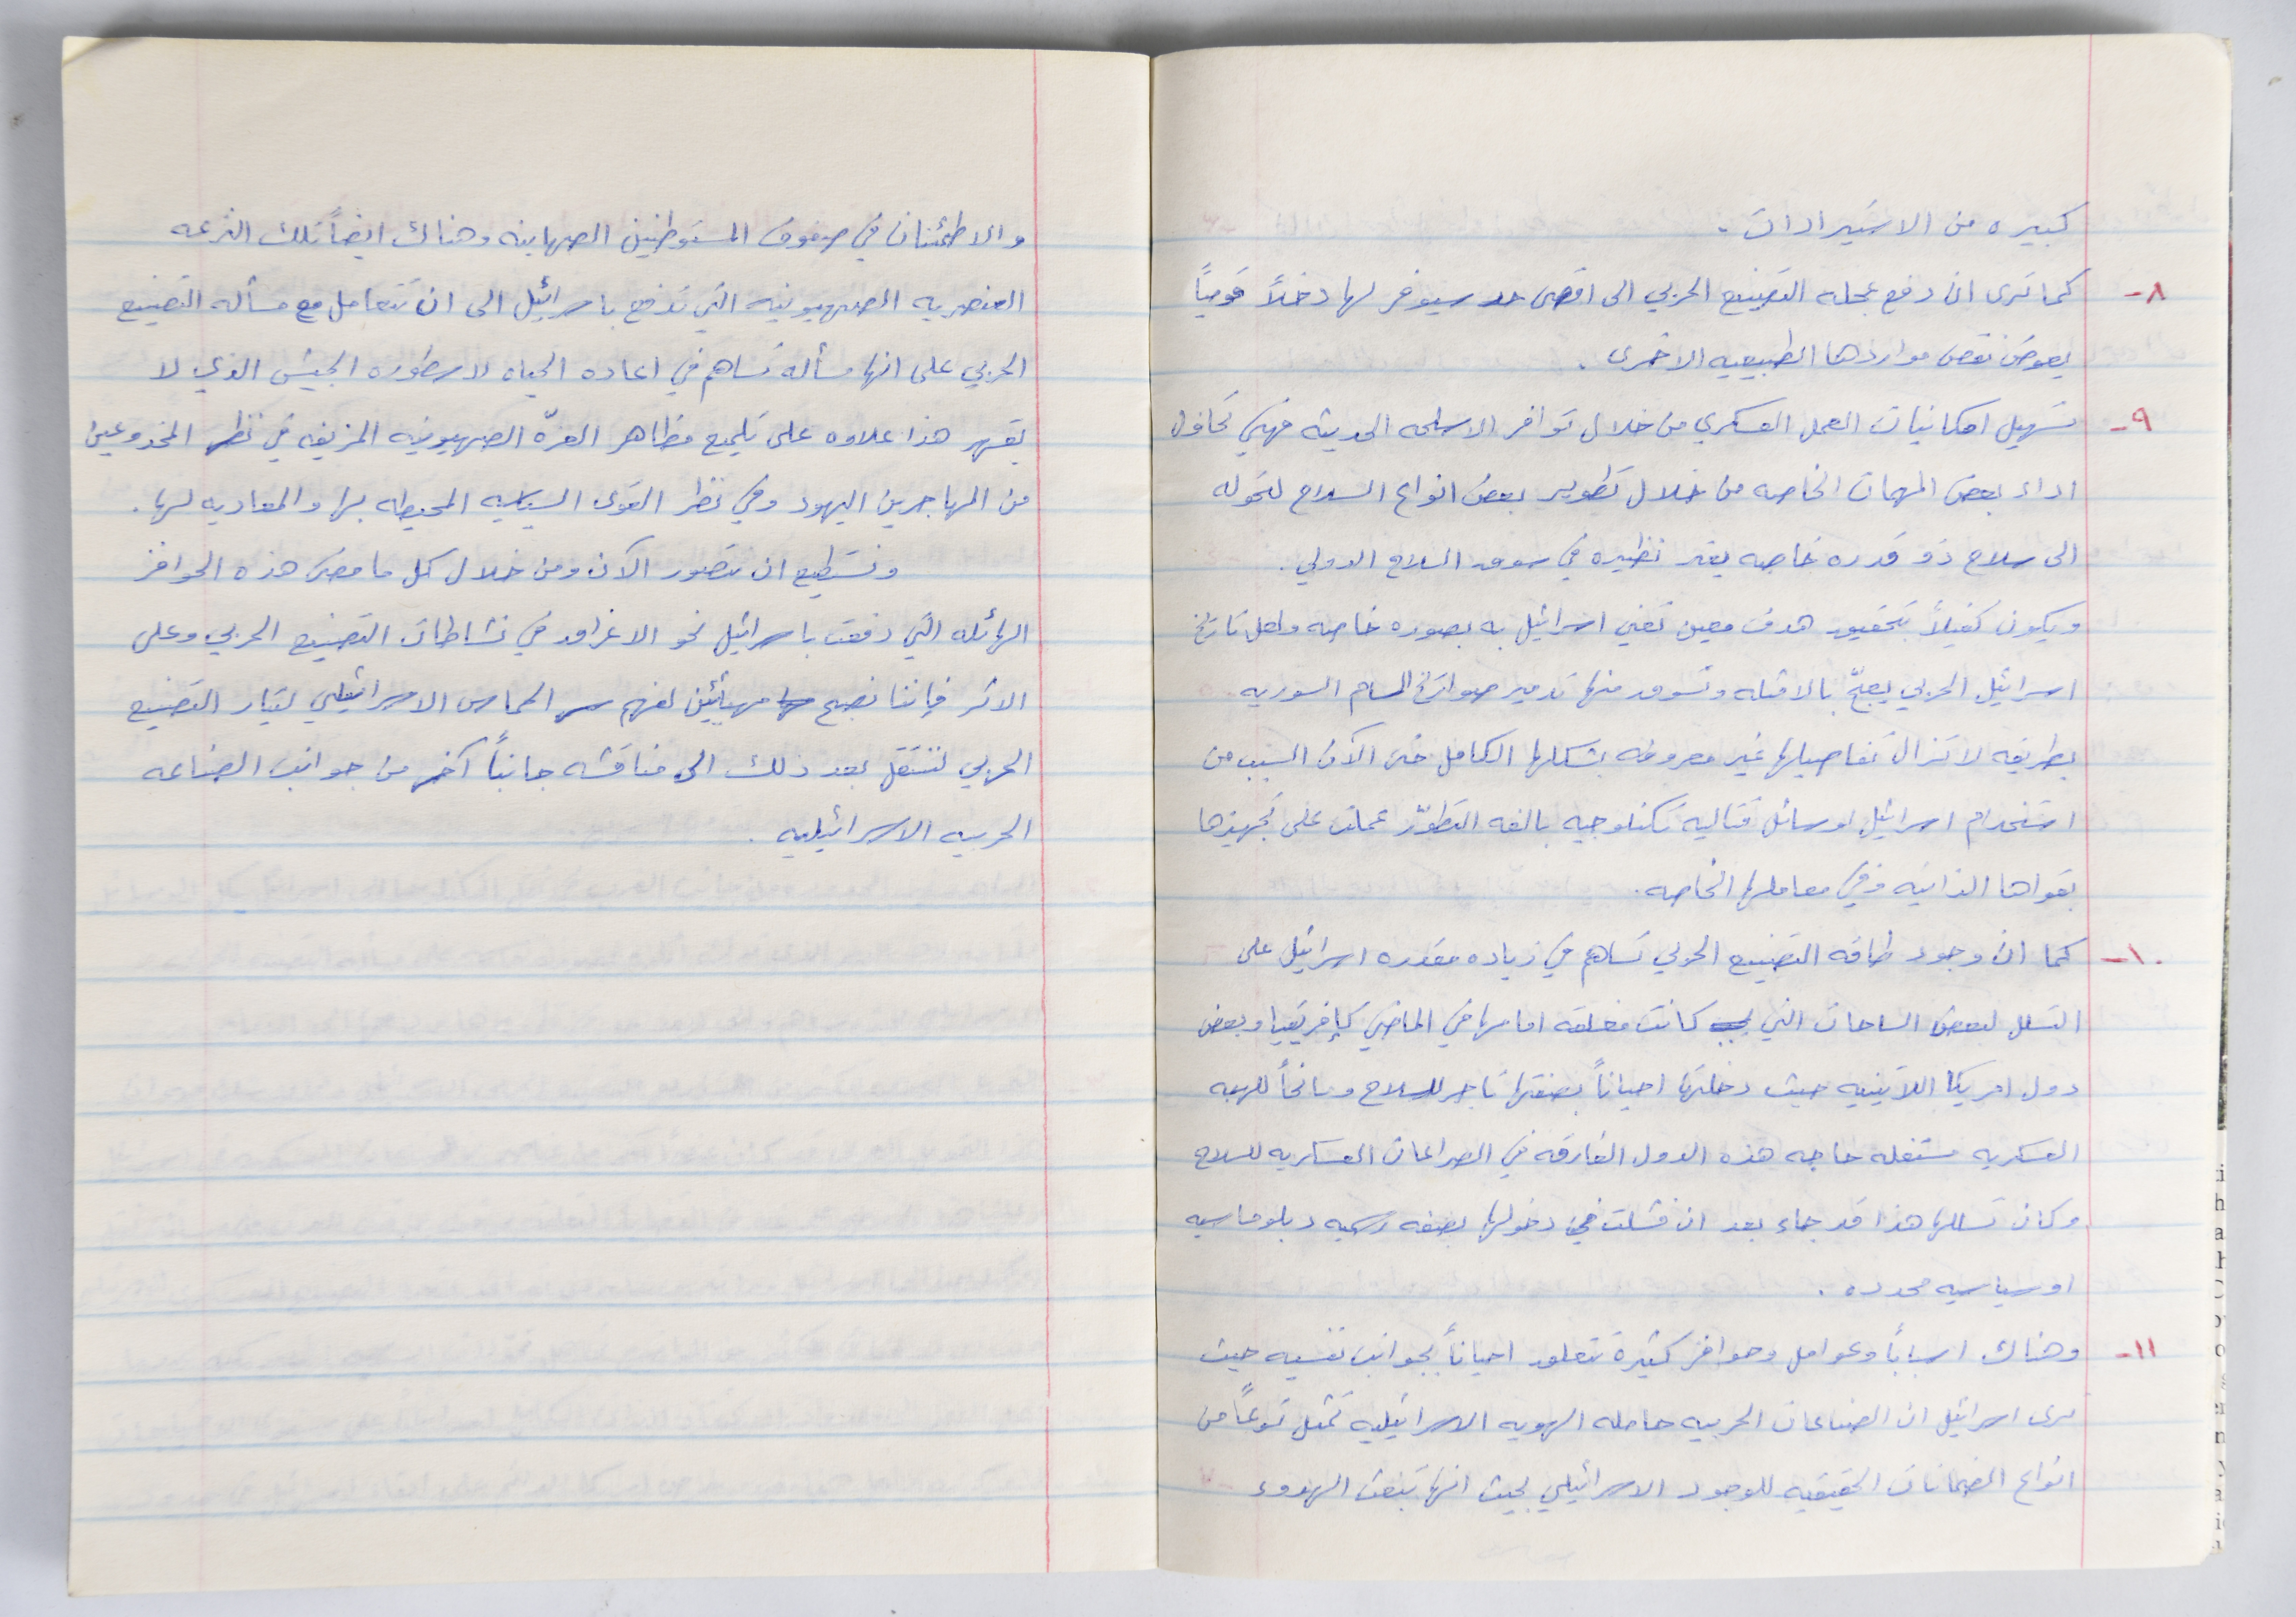 كبيره من الاستيرادات .
٨- كما ترى ان دفع عجله التصنيع الحربي الى اقصى حد سيوفر لها دخلاً قومياً
يعوض نقص مواردها الطبيعيه الاخرى .
٩- تسهيل امكانيات العمل العسكري من خلال توافر الاسلحه الحديثه فهي تحاول
اداء بعض المهمات الخاصه من خلال تطوير بعض انواع السلاح لتحوله
الى سلاح ذو قدره خاصه يفتقد نظيره في سوق السلاح الدولي .
ويكون كفيلاً بتحقيق هدف معين تعني اسرائيل به بصوره خاصه ولعل تاريخ
اسرائيل الحربي يعجّ بالامثله ونسوق منها تدمير صواريخ السام السوريه
بطريقه لا تزال تفاصيلها غير معروفه بشكلها الكامل حتى الآن السبب من
استخدام اسرائيل لوسائل قتاليه تكنلوجيه بالغه التطوّر عملت على تجهيزها
بقواها الذاتيه وفي معاملها الخاصه .
١٠- كما ان وجود طاقه التصنيع الحربي تساهم في زياده مقدره اسرائيل على
التسلل لبعض الساحات التي كانت مغلقه امامها في الماضي كإفريقيا وبعض
دول امريكا اللاتينيه حيث دخلتها احياناً بصفتها تاجر للسلاح ومانحاً للهبه
العسكريه مستغله حاجه هذه الدول الغارقه في الصراعات العسكريه للسلاح
وكان تسللها هذا قد جاء بعد ان فشلت في دخولها بصفه رسميه دبلوماسيه
او سياسيه محدده .
١١- وهناك اسباباً وعوامل وحوافز كثيرة تتعلق احياناً بجوانب نفسيه حيث
ترى اسرائيل ان الصناعات الحربيه حامله الهويه الاسرائيليه تمثل نوعاً من
انواع الضمانات الحقيقيه للوجود الاسرائيلي بحيث انها تبعث الهدوء
والاطمئنان في صفوف المستوطنين الصهاينه وهناك ايضاً تلك النزعه
العنصريه الصهيونيه التي تدفع باسرائيل الى ان تتعامل مع مسأله التصنيع
الحربي على انها مسأله تساهم في اعاده الحياه لاسطوره الجيش الذي لا
يقهر هذا علاوه على تلميع مظاهر العزّه الصهيونيه المزيفه في نظر المخدوعين
من المهاجرين اليهود وفي نظر القوى السياسيه المحيطه بها والمعاديه لها .
ونستطيع ان نتصور الآن ومن خلال كل ما مضى هذه الحوافز
الهائله التي دفعت باسرائيل نحو الاغراق في نشاطات التصنيع الحربي وعلى
الاثر فإننا نصبح مهيأين لفهم سر الحماس الاسرائيلي لتيار التصنيع
الحربي لننتقل بعد ذلك الى مناقشه جانباً آخر من جوانب الصناعه
الحربيه الاسرائيليه .